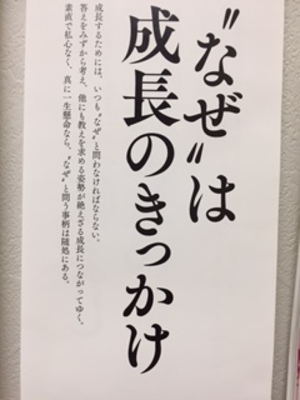 〝なぜ〟は
成長のきっかけ
成長するためには、いつも〝なぜ〟と問わなければならない。
答えをみずから考え、他にも教えを求める姿勢が絶えざる成長につながってゆく。
素直で私心なく、真に一生懸命なら、〝なぜ〟と問う事柄は随処にある。